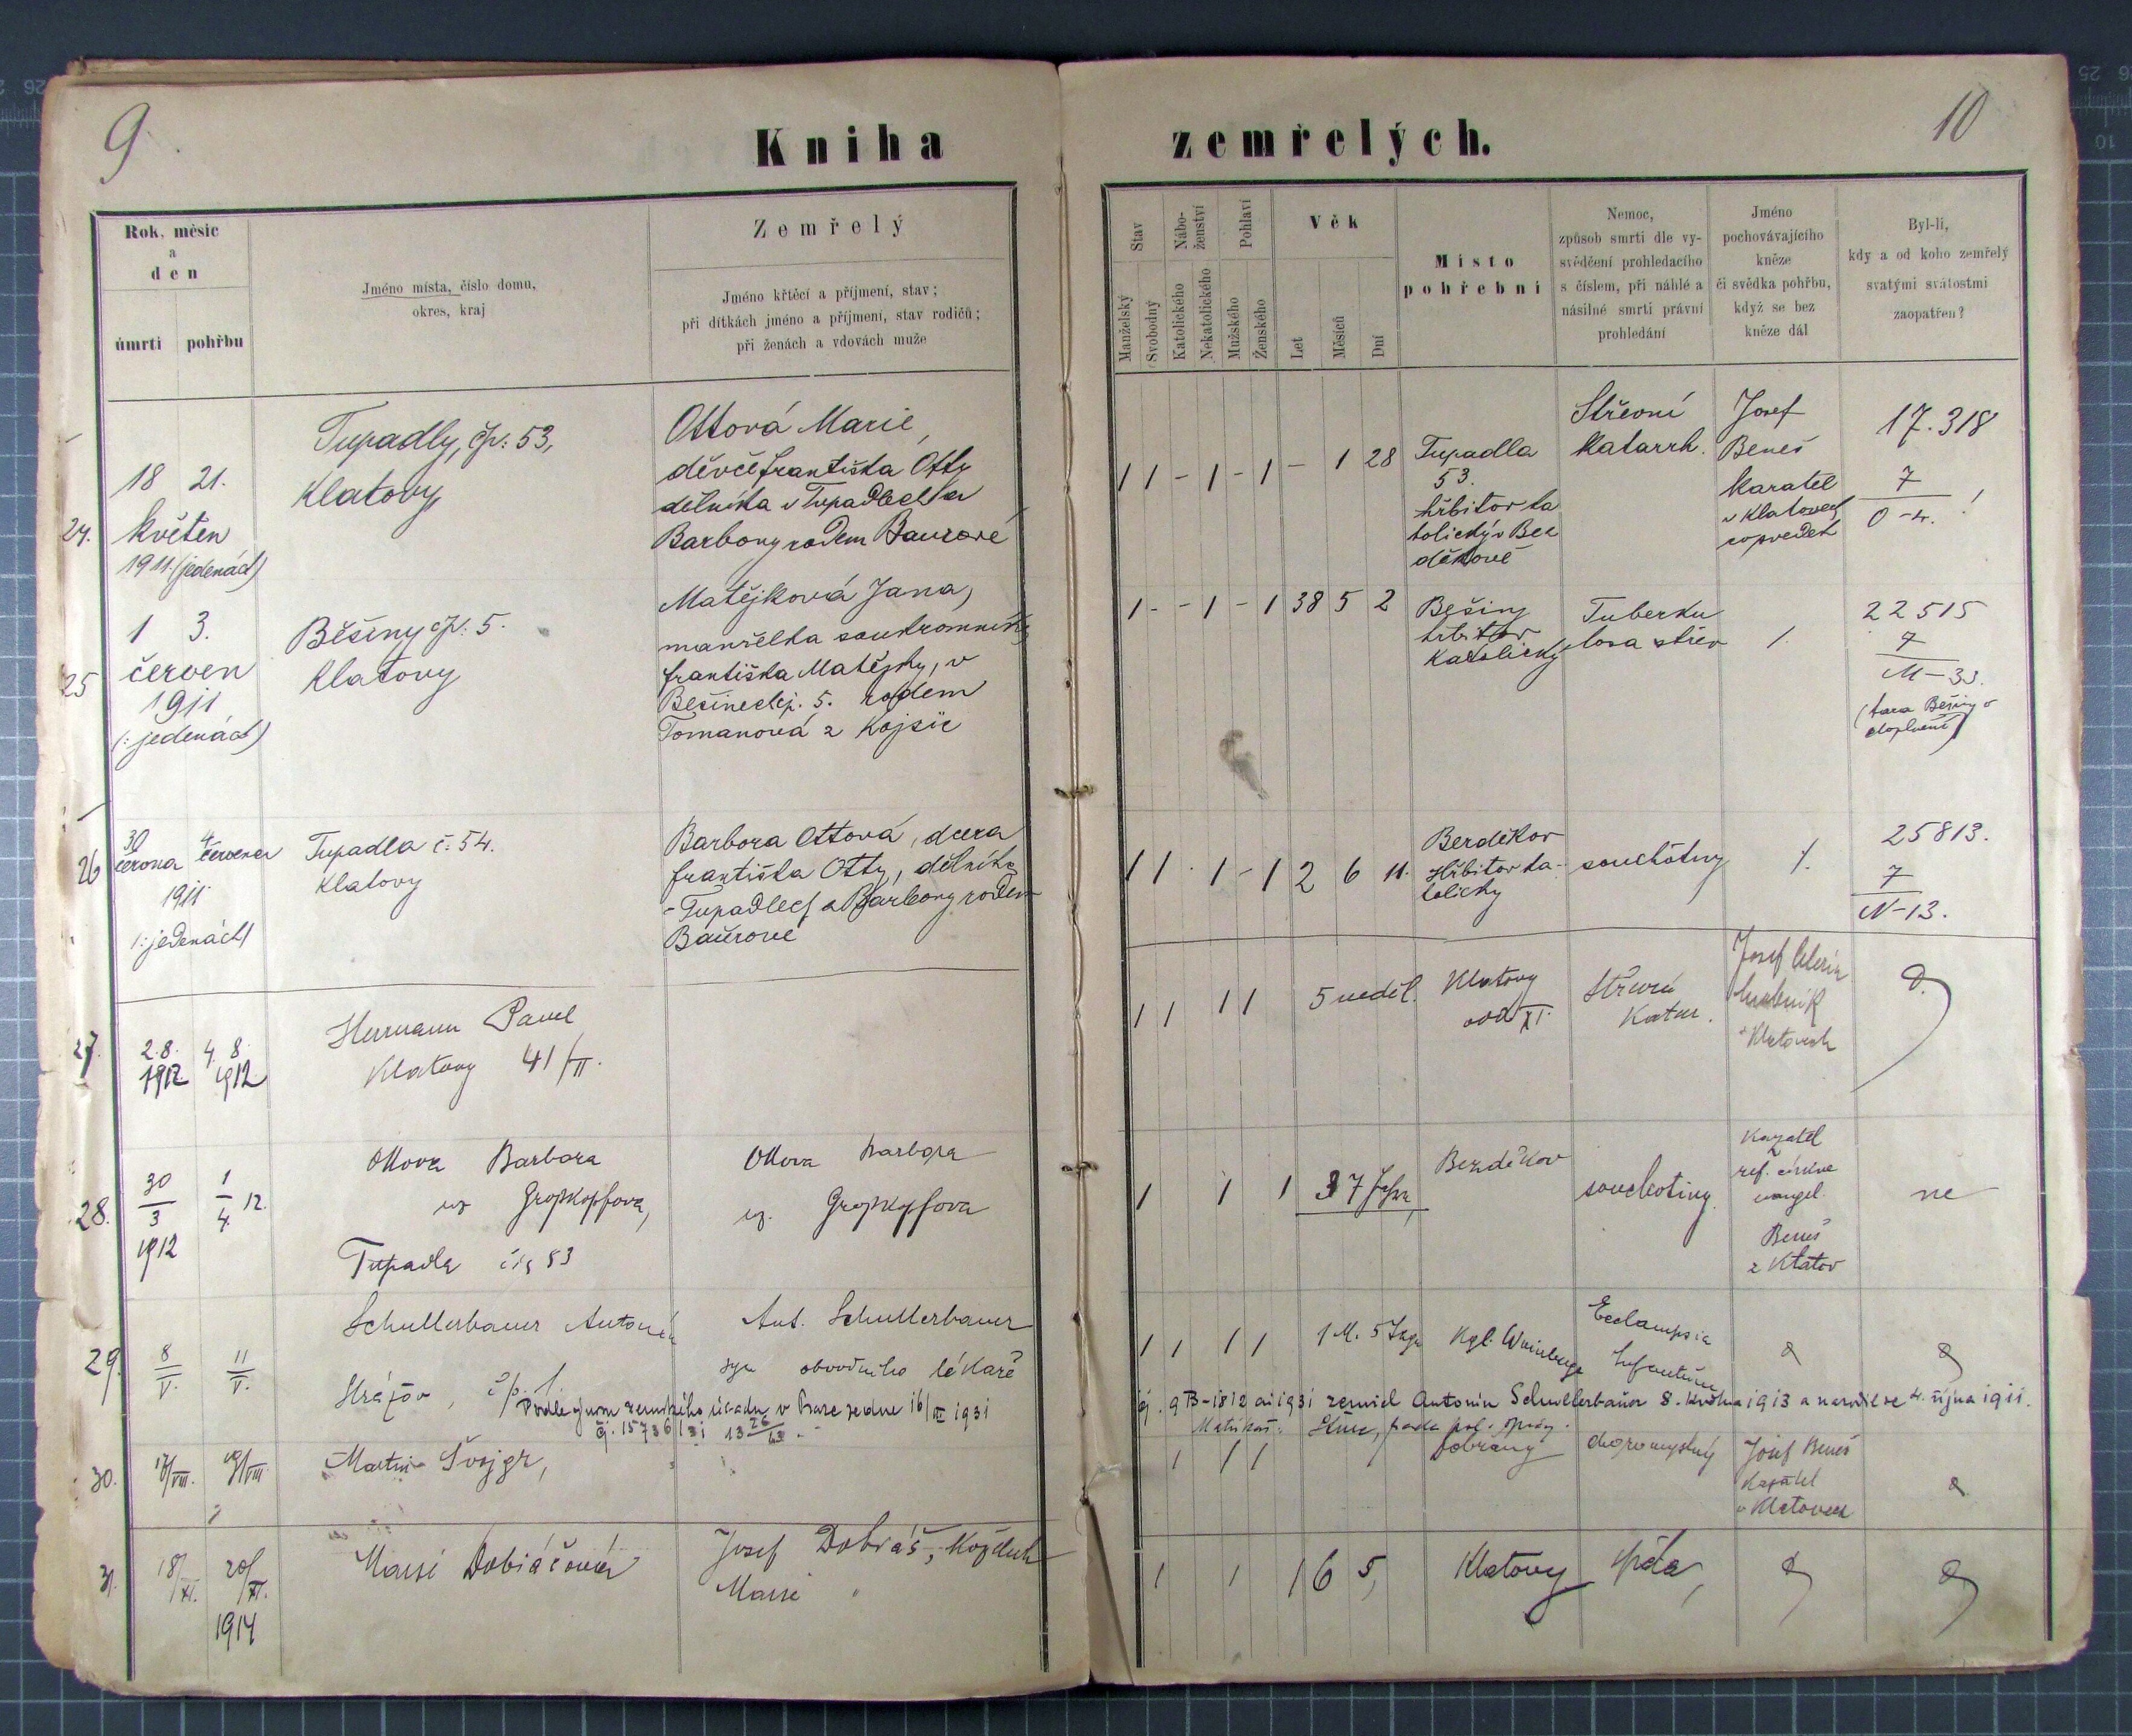 9
10
Kniha zemřelých.
Rok, měsíc
a
den
úmrtí pohřbu
Jméno místa, číslo domu,
okres, kraj
Zemřelý
Jméno křtěcí a příjmení, stav;
při dítkách jméno a příjmení, stav rodičů;
při ženách a vdovách muže
Stav
Manželský
Svobodný
Nábo-
ženství
Katolického
Nekatolického
Pohlaví
Mužského
Ženského
Věk
Let
Měsíců
Dní
Místo
pohřební
Nemoc,
způsob smrti dle vy-
svědčení prohledacího
s číslem, při náhlé a
násilné smrti právní
prohledání
Jméno
pochovávajícího
kněze
či svědka pohřbu,
když se bez
kněze dál
Byl-li,
kdy a od koho zemřelý
svatými svátostmi
zaopatřen?
24.
18 21.
květen
1911. (jedenáct)
Tupadly, čp: 53,
Klatovy
Ottová Marie,
děvče Františka Otty
dělníka v Tupadlech a
Barbory rodem Baurové
1 1 - 1 - 1 - 1 28
Tupadla
53.
hřbitov ka
tolický v Bez
děkově
Střevní
Katarrh.
Josef
Beneš
Kazatel
v Klatovech
17.318
7
0-4. !
25
1 3.
červen
1911
(:jedenáct)
Běšiny čp: 5.
Klatovy
Matějková Jana,
manželka soukromníka
Františka Matějky, v
Běšinech čp. 5. rodem
Tomanová z Kojšic
1 - - 1 - 1 38 5 2
Běšiny
hřbitov
Katolický
Tuberku
losa střev
22515
7
M-33.
26
30 4
června července
1911
(:jedenáct)
Tupadla č. 54.
Klatovy
Barbora Ottová, dcera
Františka Otty, dělníka
v Tupadlech a Barbory rodem
Baurové
1 1 . 1 - 1 2 6 11.
Bezděkov
Hřbitov ka-
tolický
souchotiny
25813.
7
N-13.
27.
2.8. 4. 8.
1912 1912
Hermann Pavel
Klatovy 41/II.
1 1 1 1 5 neděl.
Klatovy
Střevní
Katar.
Josef
v Klatovech
28.
30/3 1/4 12.
1912
Ottova Barbora
Tupadla čís 53
Ottova Barbora
1 1 1 37 Jahre
Bezděkov
souchotiny.
Kazatel
ref. církve
evangel.
Beneš
z Klatov
ne
29.
8/V. 11/V.
Schullerbauer Antonín
Strážov, čp. 1.
Ant. Schullerbauer
syn obvodního lékaře
1 1 1 1 1 M. 5 Tage
Kgl. Weinberge
Ecclampsia
Infantum
Podle výnosu zemského úřadu v Praze ze dne 16/III 1931
čj. 9 B-1812 ai 1931 zemřel Antonín Schullerbauer 8. května 1913 a narodil se 4. října 1911.
30.
17/VIII. 19/VIII
Martin Švojgr,
1 1 1
Dobřany
choromyslný
Josef Beneš
Kazatel
v Klatovech
31.
18/XI. 20/XI.
1914
Marie Dobiášová
Josef Dobiáš,
Marie "
1 1 1 6 5,
Klatovy